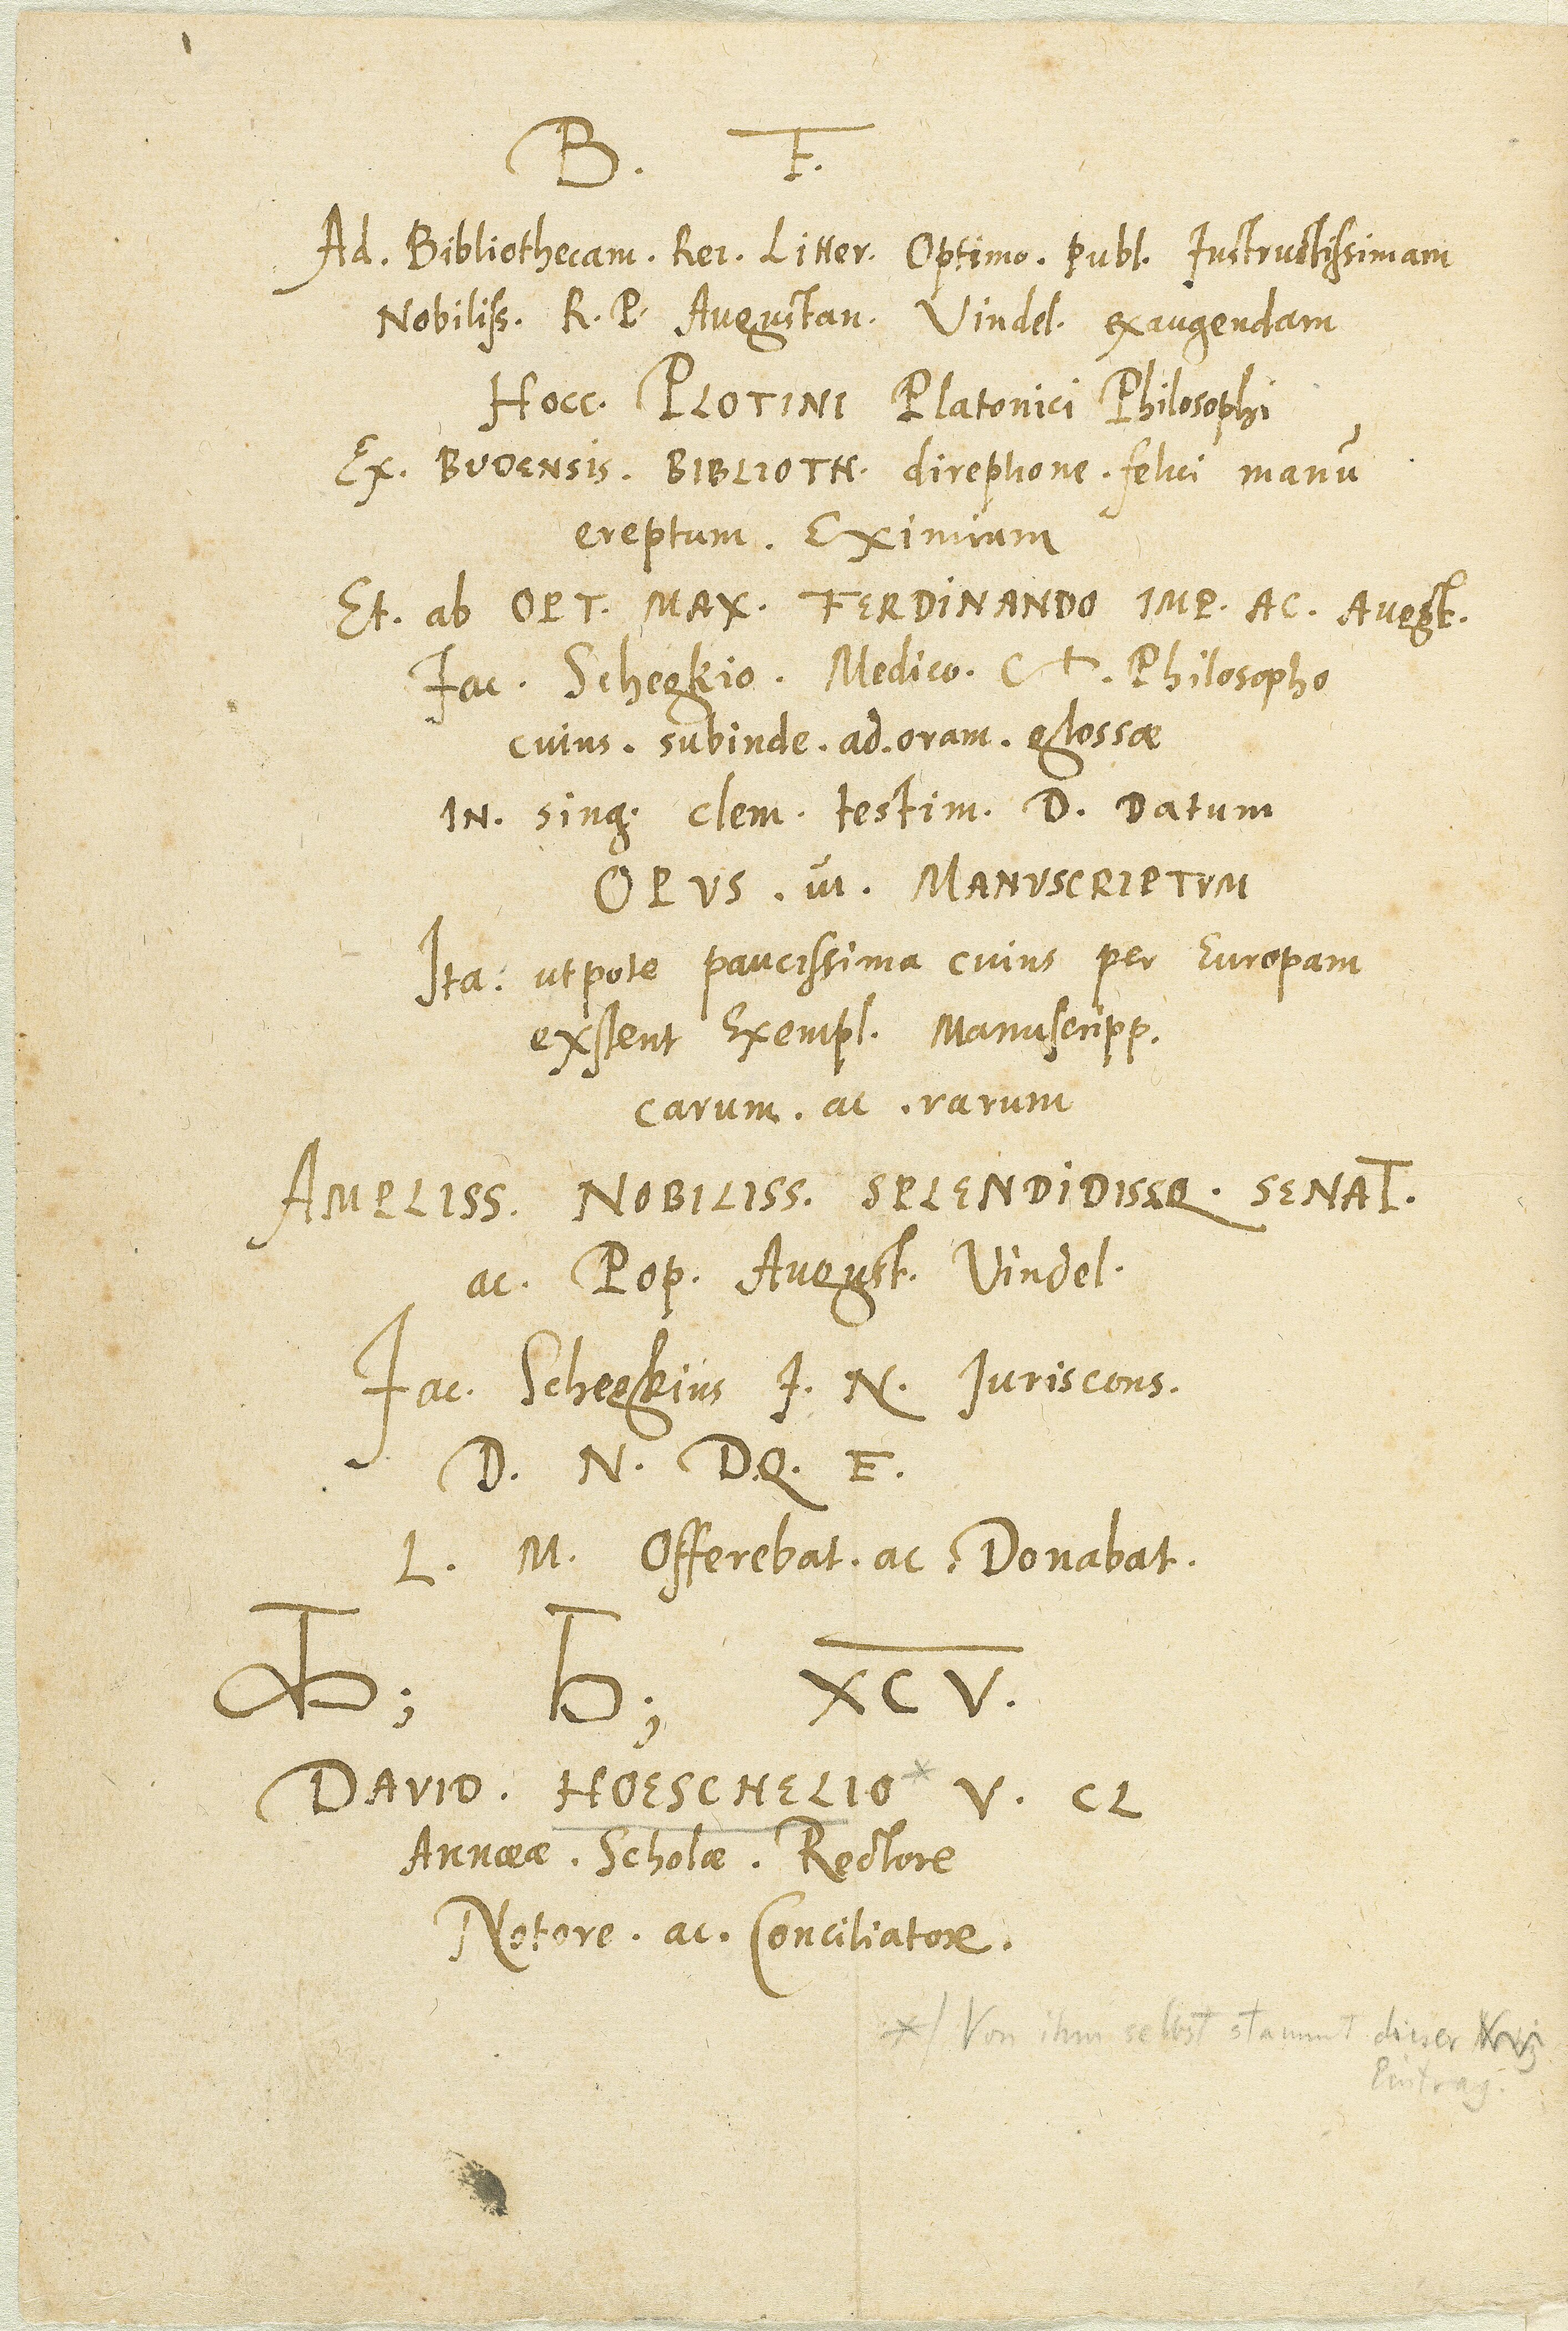 B. F.
Ad. Bibliothecam. Rei. Litter. Optimo. publ. Instructissimam
Nobiliss. R. P. Augustan. Vindel. exaugendam
Hocc. PLOTINI Platonici Philosophi
Ex. BUDENSIS. BIBLIOTH. direptione. felici manū
ereptum. Eximium
Et. ab OPT. MAX. FERDINANDO IMP. AC. Augst.
Jac. Schegkio. Medico. Philosopho
cuius. subinde. ad. oram. glossæ
IN. sing. clem. testim. D. Datum
OPVS. MANVSCRIPTVM
Ita: utpote paucissima cuius per Europam
exstent Exempl. Manuscripp.
carum. ac. rarum
AMPLISS. NOBILISS. SPLENDIDISSQ. SENAT.
ac. Pop. August. Vindel.
Jac. Schegkius J. N. Juriscons.
D. N. D.Q. E.
L. M. Offerebat. ac Donabat.
XCV.
DAVID. HOESCHELIO* V. CL
Annææ. Scholæ. Rectore
Notore. ac. Conciliatore.
*/ Von ihm selbst stammt dieser
Eintrag.